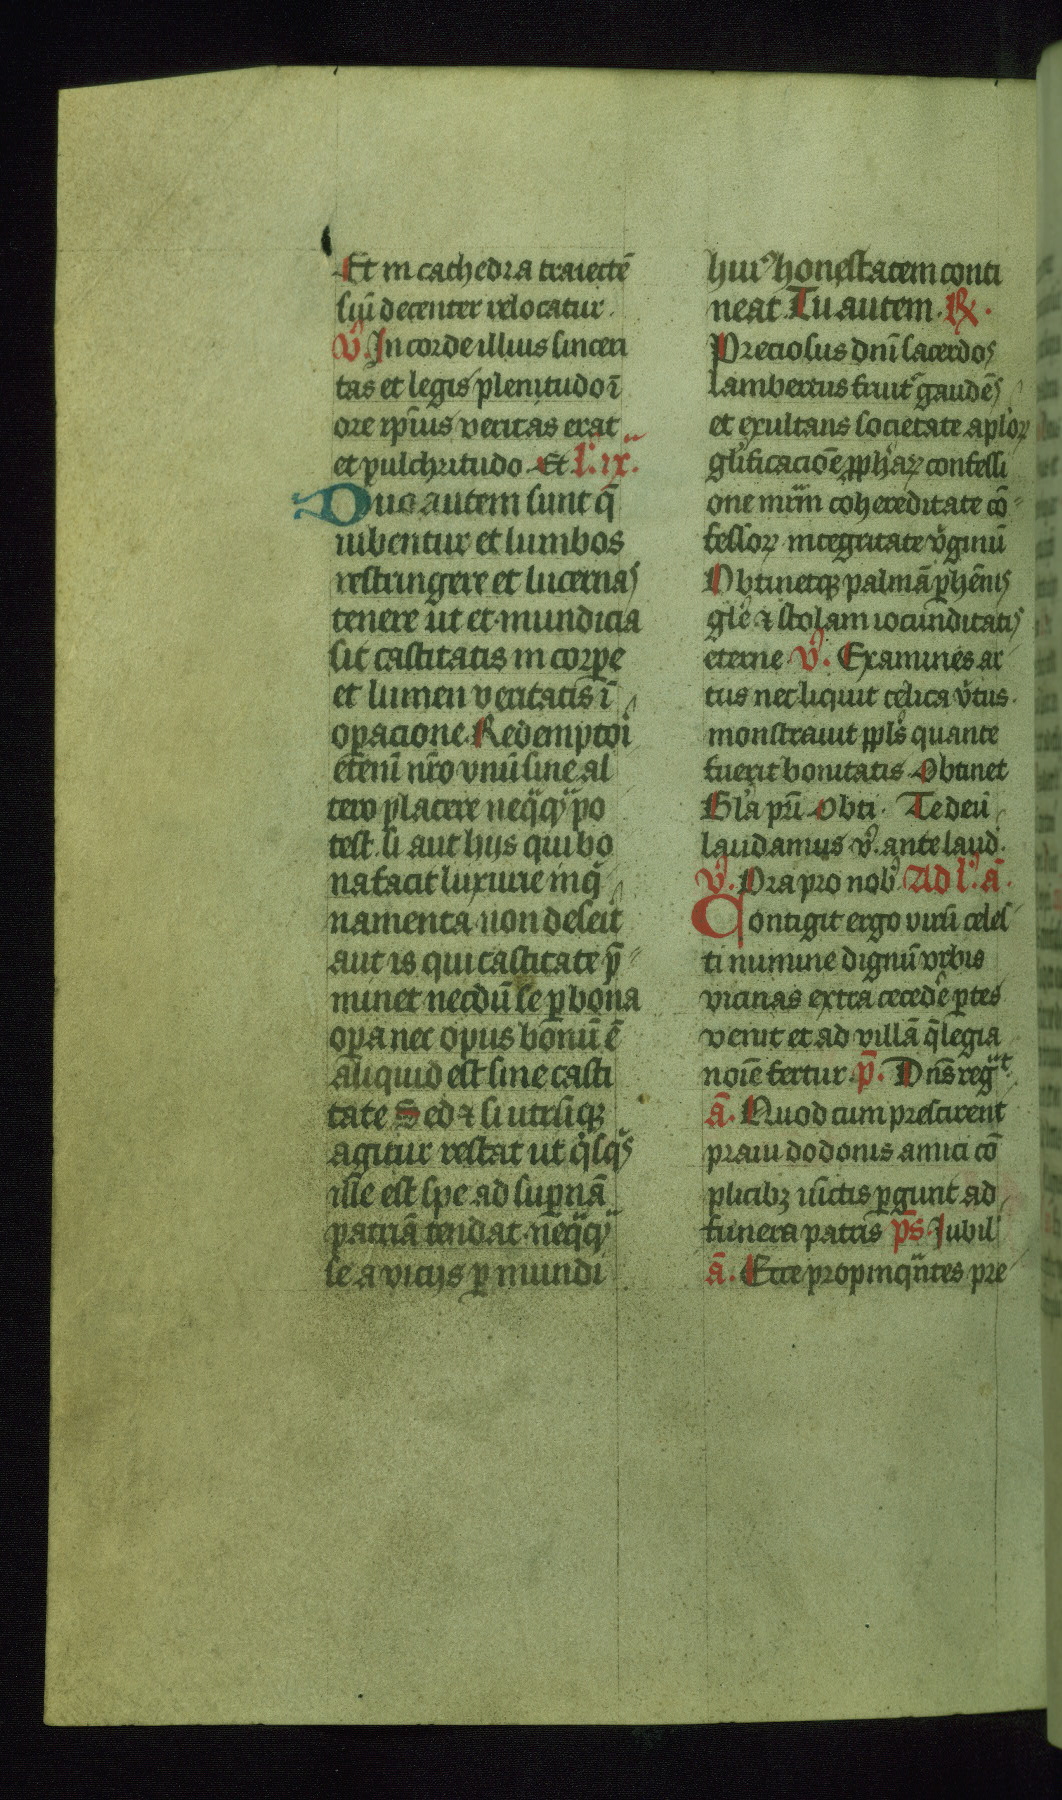 Et in cathedra traiectē
siū decenter relocatur.
V̉. In corde illius sinceri
tas et legis plenitudo ī
ore ip̄ius veritas erat
et pulchritudo. Et. L̉. ix.
Duo autem sunt q̄
iubentur et lumbos
restringere et lucernas
tenere ut et mundicia
sit castitatis in corꝑe
et lumen veritatis ī
oꝑacione. Redemptori
etenī nr̄o vnū sine al
tero placere neq̄q̄ po
test. si aut hijs qui bo
na facit luxurie inq̇
namenta non deserit
aut is qui castitate p̄
minet necdū se ꝑ bona
oꝑa nec opus bonū ē
aliquid est sine casti
tate Sed ⁊ si utrūqꝫ
agitur restat ut q̇sq̇s
ille est spe ad suꝑnā
patriā tendat. neq̄q̄
se a vicijs ꝑ mundi
huiꝰ honestatem conti
neat. Tu autem. ℞.
Preciosus dn̄i sacerdos
lambertus fruit̉ gaudēs
et exultans societate aplōꝝ
glīficaciōe ꝓph̄aꝝ confessi
one mr̄m cohereditate cō
fessoꝝ integritate v̉ginū
Obtinetqꝫ palmā ꝑhēnis
glē ⁊ stolam iocunditatis
eterne. V̉. Examines ar
tus nec liquit celica v̉tus.
monstrauit ppl̄s quante
fuerit bonitatis. Obtinet
Gl̄a prī. Obti. Te deū
laudamus. v̉. ante laud̉.
V̉. Ora pro nob̉. Ad l̉. ā.
Contigit ergo virū celes
ti numine dignū vrbis
vicinas extra cecedē ꝑtes
venit et ad villā q̄ legia
noīe fertur. p̄. Dn̄s reg̉t.
ā. Quod cum prescirent
praui dodonis amici cō
plicibꝫ iūctis ꝑgunt ad
funera patris. ps̄. Jubil̉
ā. Ecce propinq̄ntes pre